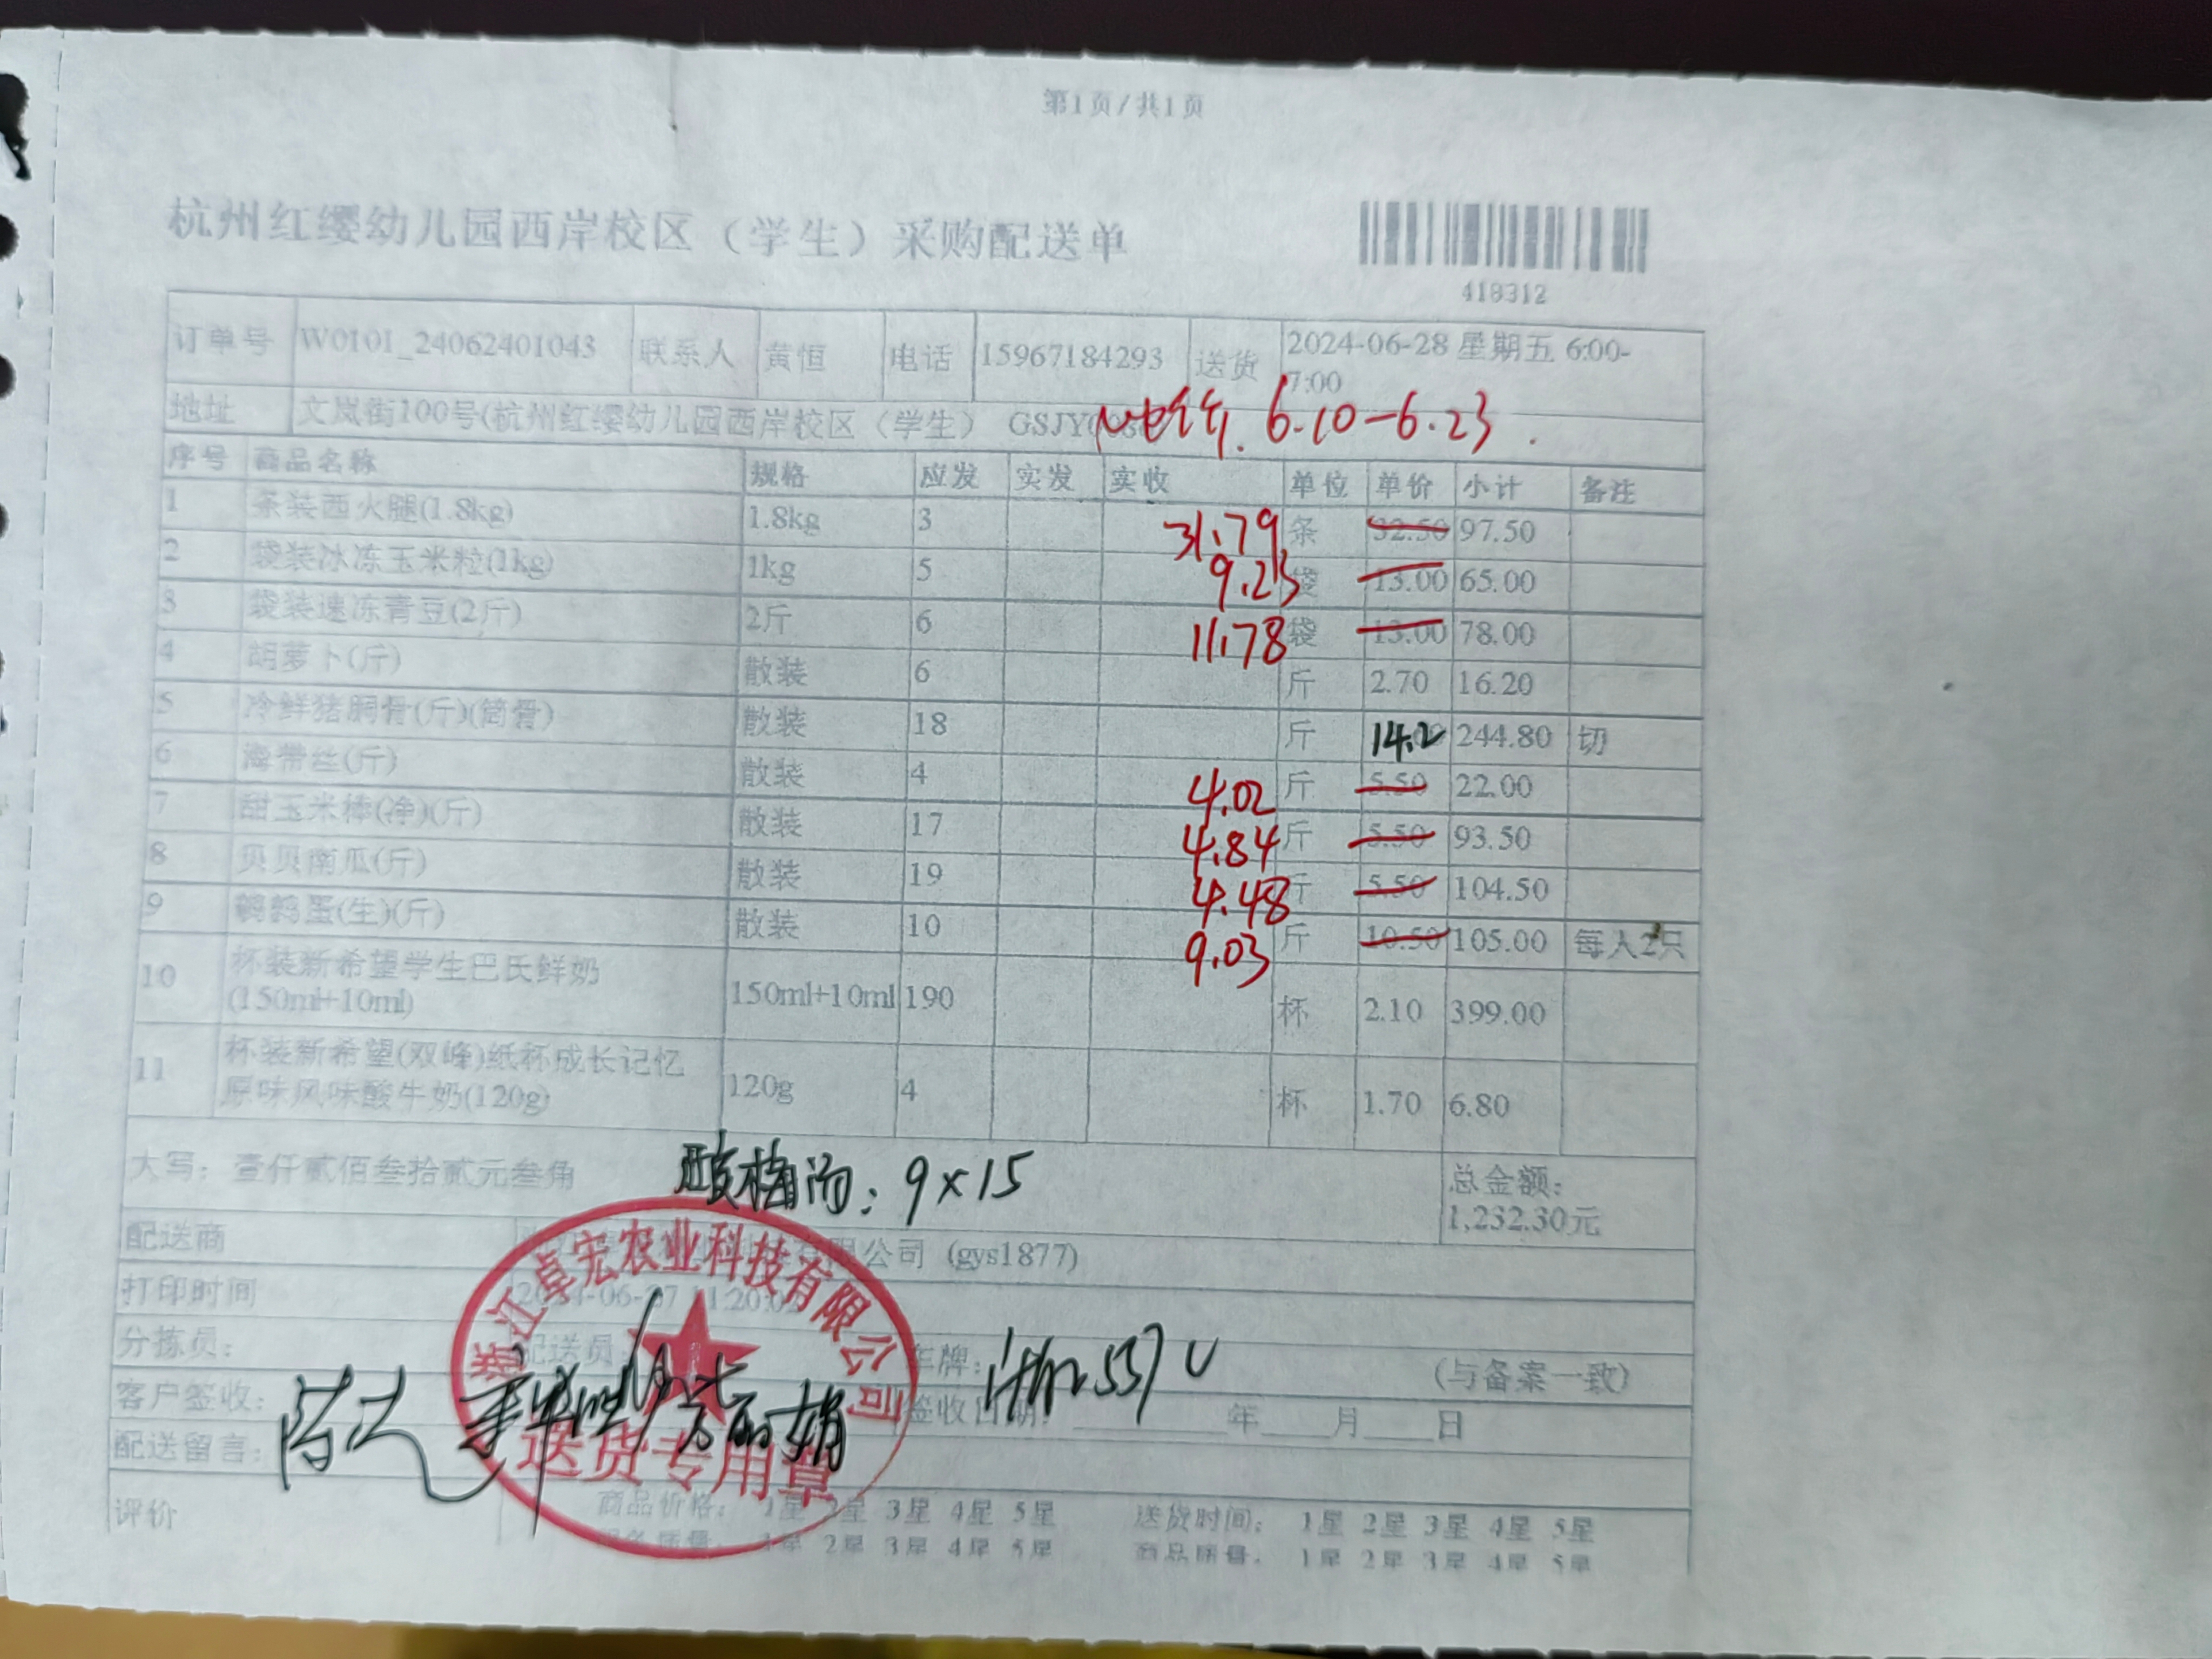 第1页/共1页
杭州红缨幼儿园西岸校区（学生）采购配送单
418312
订单号 W0101_24062401043 联系人 黄恒 电话 15967184293 送货 2024-06-28 星期五 6:00-
7:00
地址 文岚街100号(杭州红缨幼儿园西岸校区（学生） GSJY0 6.10-6.23.
序号 商品名称 规格 应发 实发 实收 单位 单价 小计 备注
1 条装西火腿(1.8kg) 1.8kg 3 31.79 条 32.50 97.50
2 袋装冰冻玉米粒(1kg) 1kg 5 9.23 袋 13.00 65.00
3 袋装速冻青豆(2斤) 2斤 6 11.78 袋 13.00 78.00
4 胡萝卜(斤) 散装 6 斤 2.70 16.20
5 冷鲜猪胴骨(斤)(筒骨) 散装 18 斤 14.2 244.80 切
6 海带丝(斤) 散装 4 4.02 斤 5.50 22.00
7 甜玉米棒(净)(斤) 散装 17 4.84 斤 5.50 93.50
8 贝贝南瓜(斤) 散装 19 4.48 斤 5.50 104.50
9 鹌鹑蛋(生)(斤) 散装 10 9.03 斤 10.50 105.00 每人2只
10 杯装新希望学生巴氏鲜奶 150ml+10ml 190 杯 2.10 399.00
(150ml+10ml)
11 杯装新希望(双峰)纸杯成长记忆 120g 4 杯 1.70 6.80
原味风味酸牛奶(120g)
大写：壹仟贰佰叁拾贰元叁角 酸梅汤：9×15 总金额：
1,232.30元
配送商 有限公司 (gys1877)
浙江卓宏农业科技有限公司
打印时间 2024-06-27 11:20:0
分拣员： 配送员 车牌： (与备案一致)
客户签收： 签收日期： 年 月 日
配送留言：
送货专用章
评价 商品价格： 1星 2星 3星 4星 5星 送货时间： 1星 2星 3星 4星 5星
服务质量： 1星 2星 3星 4星 5星 商品质量： 1星 2星 3星 4星 5星